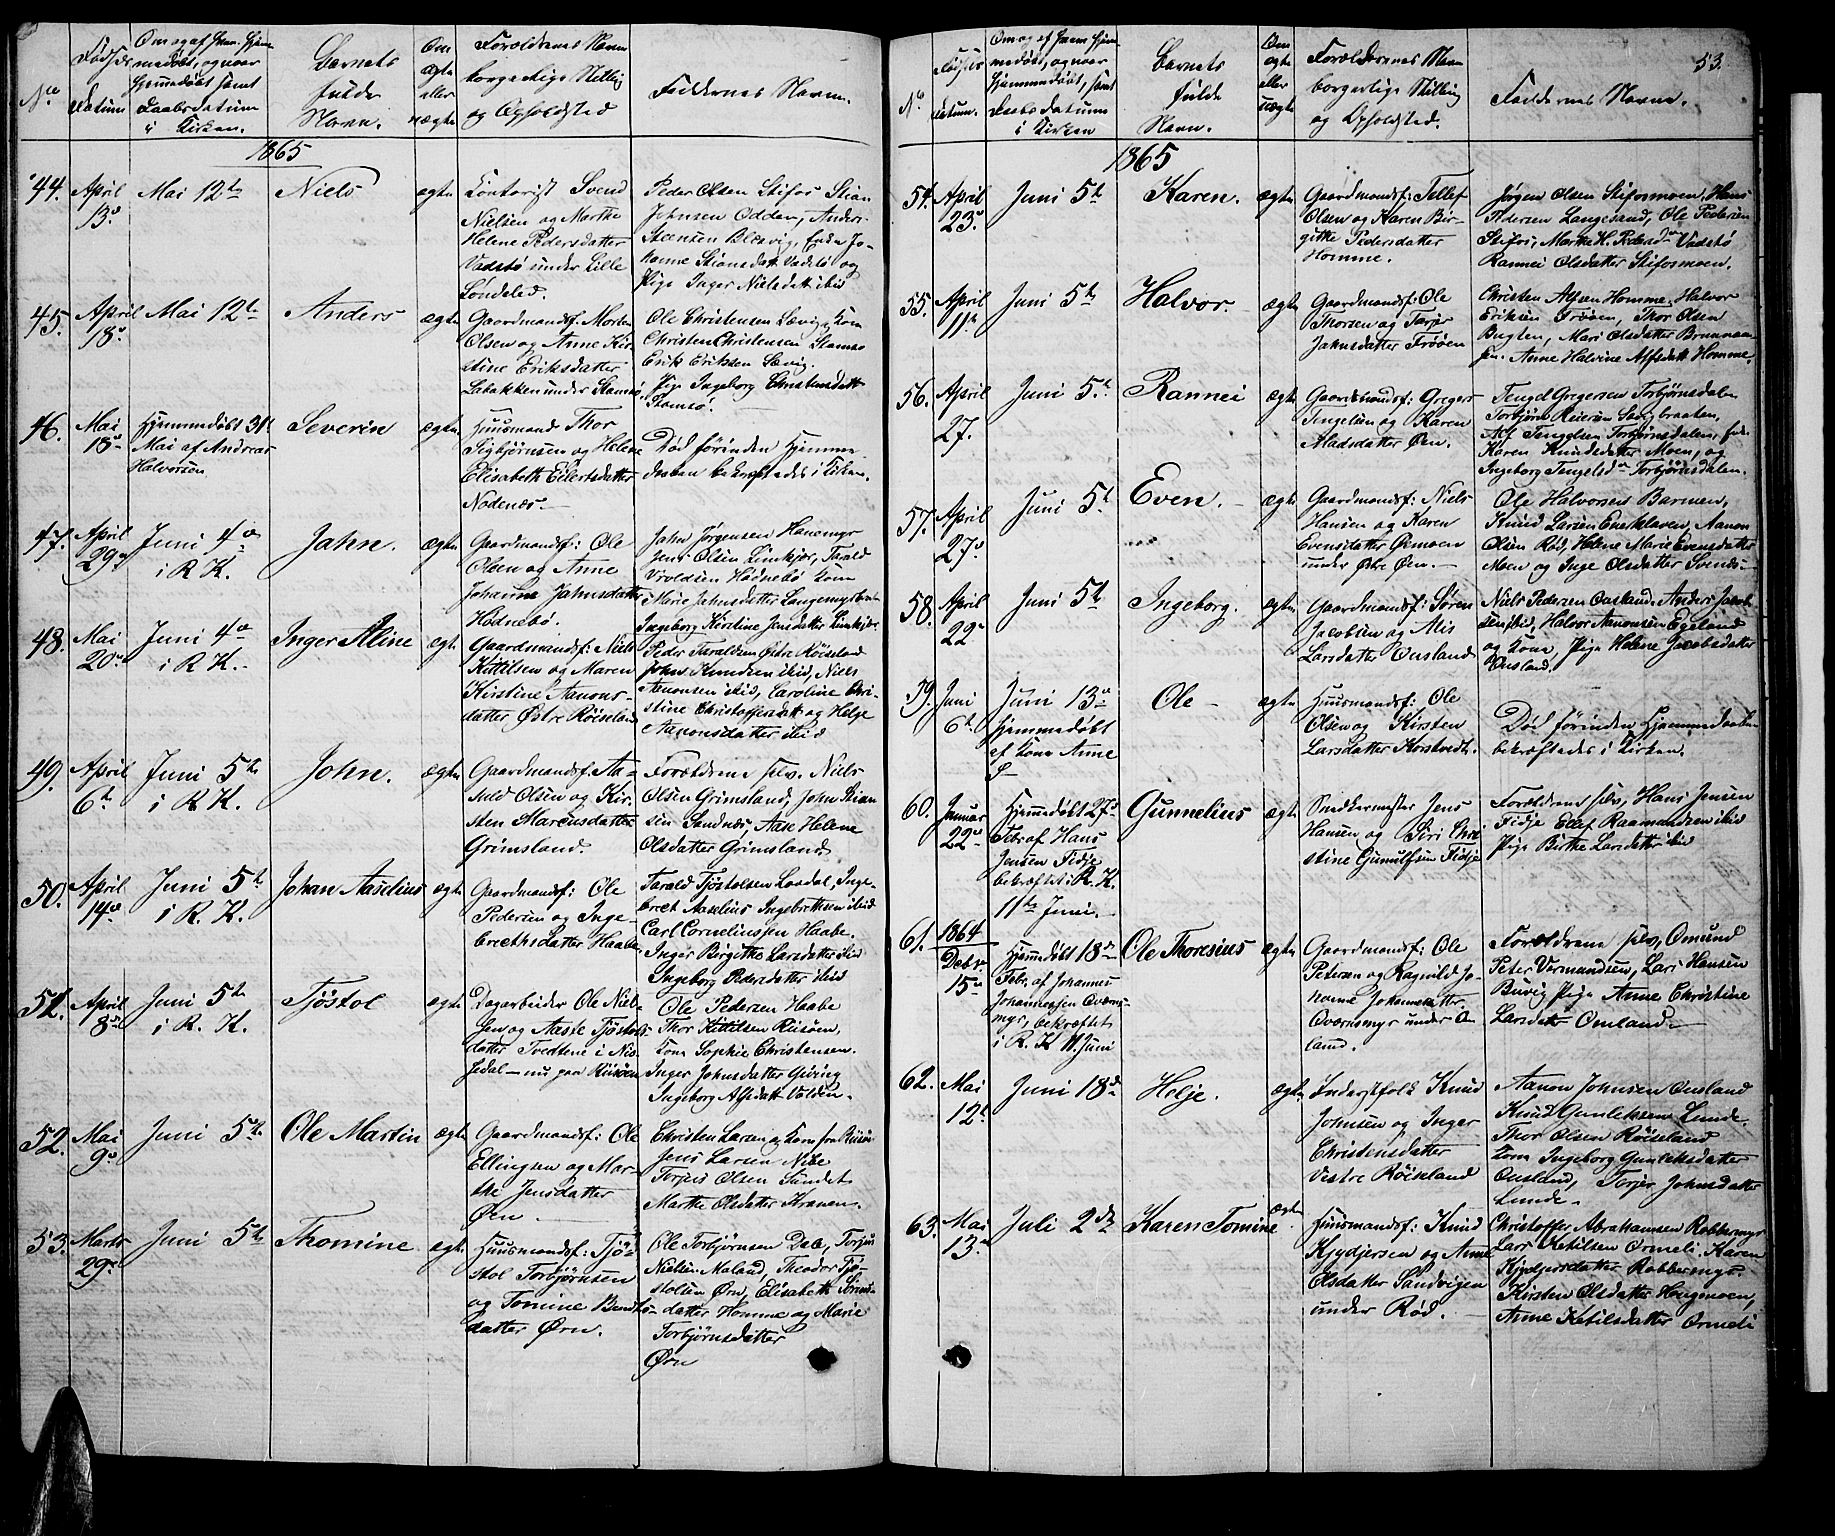 No
Fødsels
Datum
Om og af hvem hjem-
medøbt, og naar
hjemmedøbt samt
Daabsdatum
i Kirken.
Barnets
fulde
Navn.
Om
ægte
eller
uægte
Forældrenes Navn
borgerlige Stilling
og Opholdsted
Faddernes Navne.
1865
44. April
13de
Mai 12te
Niels
ægte
Kontorist Svend
Nielsen og Marthe
Helene Pedersdatter
Vadstø under Lille
Londeled.
Peder Olsen Stifos Stian
Johnsen Odden, Anders
Steensen Blesvig, Enke Jo-
hanne Stiansdatt. Vadstø og
Pige Inger Nielsdatt ibid
45. April
18de
Mai 12te
Anders
ægte
Gaardmandsf: Morten
Olsen og Anne Kir-
stine Eriksdatter
Labakken under Stamsø.
Ole Christensen Lævig, Kone
Christen Christensen Stamsø
Erik Eriksen Lævig.
Pige Ingeborg Christensdatt
Stamsø.
46. Mai
18de
Hjemmedøbt 31te
Mai af Andreas
Halvorsen
Severin
ægte
Huusmand Thor
Sigbjørnsen og Helene
Elisabeth Eilertsdatter
Nødenæs.
Død førinden Hjemme-
daaben bekræftedes i Kirken.
47. April
29de
Juni 4de
i R. K.
Jahn.
ægte
Gaardmandsf: Ole
Olsen og Anne
Johanne Jahnsdatter
Hødnebø.
Jahn Jørgensen Hanemyr
Jens Olsen Limkjær, Tarald
Vivoldsen Hødnebø Kone
Marie Jahnsdatter Langemyr
Ingeborg Kirstine Jensdatter Limkjær
48. Mai
20de
Juni 4de
i R. K.
Inger Aline
ægte
Gaardmandsf: Niels
Kittilsen og Maren
Kirstine Aanons-
datter Østre Røiseland
Peder Taraldsen Østre Røiseland
John Knudsen ibid, Niels
Aanonsen ibid, Caroline Chri-
stine Christoffersdatt og Helge
Aanonsdatter ibid
49. April
6te
Juni 5te
i R. K.
John.
ægte
Gaardmandsf. Aa-
nuld Olsen og Kir-
sten Marcusdatter
Grimsland.
Forældrene selv. Niels
Olsen Grimsland, John Stian-
sen Sandnæs, Aase Helene
Olsdatter Grimsland.
50. April
14de
Juni 5te
i R. K.
Johan Aaselius
ægte
Gaardmandsf: Ole
Pedersen og Inge-
brethsdatter Haabe
Tarald Tjøstolsen Løvdal, Inge-
bret Aaselius Ingebrethsen ibid
Carl Corneliussen Haabe.
Inger Birgitte Larsdatter ibid
Ingeborg Pedersdatter ibid
51. April
8de
Juni 5te
i R. K.
Tjøstol
ægte
Dagarbeider Ole Niel-
sen og Aaste Tjøstols-
datter Tvedtene i Nis-
sedal - nu paa Riisøen
Ole Pedersen Haabe
Thor Kittilsen Riisøen,
Kone Sophie Christensen.
Inger Johnsdatter Gjeving
Ingeborg Alfsdatt Volden.
52. Mai
9de
Juni 5te
Ole Martin
ægte
Gaardmandsf: Ole
Ellingsen og Mar-
the Jensdatter
Øen
Christen Larsen og Kone fra Riisøen
Jens Larsen Nibe
Torjus Olsen Sundet
Marthe Olsdatter Kranen.
53. Marts
29de
Juni 5te
Thomine
ægte
Huusmandsf: Tjø-
stol Torbjørnsen
og Tomine Bendts-
datter Ørn.
Ole Torbjørnsen Dale, Torjus
Nielsen Maland, Theodor Tjø-
stolsen Ørn, Elisabeth Sørens-
datter Homme og Marie
Torbjørnsdatter
Ørn
53.
No
Fødsels
datum.
Om og af hvem hjem-
medøbt, og naar
hjemmedøbt, samt
Daabsdatum
i Kirken
Barnets
fulde
Navn.
Om
ægte
eller
uægte
Forældrenes Navn
borgerlige Stilling
og Opholdsted.
Faddernes Navne.
1865
54. April
23de
Juni 5te
Karen.
ægte
Gaardmandsf: Tellef
Olsen og Karen Bir-
gitte Pedersdatter
Homme.
Jørgen Olsen Stifosmoen, Hans
Pedersen Langesand, Ole Pedersen
Stifos, Marthe H. Pedersd. Vadstø
Rannei Olsdatter Stifosmoen.
55. April
11te
Juni 5te
Halvor.
ægte
Gaardmandsf: Ole
Thorsen og Torjer
Jahnsdatter Trøen
Christen Alfsen Homme, Halvor
Eriksen Trøen, Thor Olsen
Bugten, Mari Olsdatter Brunaasen
Anne Halvine Alfsdatt Homme.
56. April
27.
Juni 5te
Rannei
ægte
Gaardmandsf: Greger
Tengelsen og Karen
Madsdatter Øen.
Tengel Gregersen Torbjørnsdalen
Torbjørn Reiersen Langbraaten,
Alf Tengelsen Torbjørnsdalen,
Karen Knudsdatter Moen, og
Ingeborg Tengelsd. Torbjørnsdalen.
57. April
27de
Juni 5te
Even.
ægte
Gaardmandsf: Niels
Hansen og Karen
Evensdatter Øemoen
under Østre Øen.
Ole Halvorsen Barmen,
Knud Larsen Eneklaven, Aanon
Olsen Rød, Helene Marie Evensdatter
Moen og Inge Olsdatter Svends-
58. April
22de
Juni 5te
Ingeborg.
ægte
Gaardmandsf: Søren
Jacobsen og Alis
Larsdatter Ousland
Niels Pedersen Ousland, Anders Jacob-
sen ibid, Halvor Aanonsen Egeland
og Kone, Pige Helene Jacobsdatter
Ousland.
59. Juni
6te
Juni 13de
Hjemmedøbt
af Kone Anne
Ø
Ole
ægte
Huusmandsf: Ole
Olsen og Kirsten
Larsdatter Korstvedt.
Død førinden Hjemmedaaben
bekræftedes i Kirken.
60. Januar
22de
Hjemmedøbt 27de
Febr af Hans
Jensen Fidje
bekræftet i R. K.
11te Juni.
Gunnelius
ægte
Snedkermester Jens
Hansen og Siri Chri-
stine Gunulfsen Fidje
Forældrene selv, Hans Jensen
Fidje Ellef Raamundsen ibid
Pige Birthe Larsdatter ibid
61. 1864
Debr.
15de
Hjemmedøbt 18de
Febr. af Johannes
Johannessen Overns-
myr, bekræftet
i R. K. 11. Juni
Ole Thoresius
ægte
Gaardmandsf: Ole
Petersen og Ragnild Jo-
hanne Johannesdatter
Overnsmyr under O-
land.
Forældrene selv, Omund
Peter Vermundsen, Lars Hansen
Buvig Pige Anne Christine
Larsdatt Omland.
62. Mai
12te
Juni 18de
Helje.
ægte
Inderstfolk Knud
Johnsen og Inger
Christensdatter
Vestre Røiseland
Aanon Johnsen Ousland
Knud Gunleksen Lunde.
Thor Olsen Røiseland
Kone Ingeborg Gunleksdatter
Ousland, Torjer Johnsdatter
Lunde
63. Mai
13de
Juli 2den
Karen Tomine
ægte
Huusmandsf: Knud
Kjydjersen og Anne
Olsdatter Sandvigen
under Rød.
Christoffer Abrahamsen Robbermyr
Lars Ketilsen Ormeli. Karen
Kjydjersdatter Robbermyr.
Kirsten Olsdatter Hougmoen,
Anne Ketilsdatter Ormeli